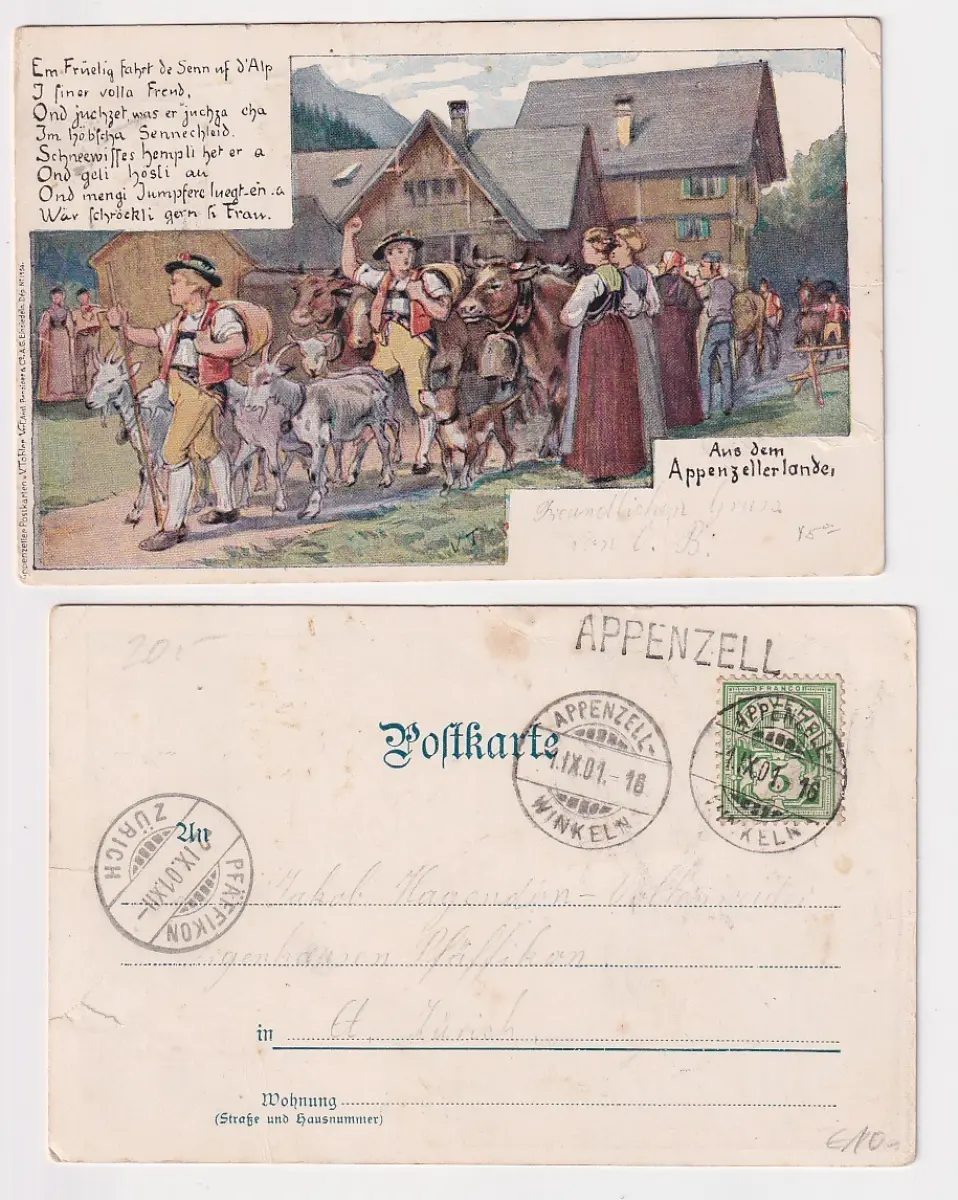 Em Früelig fahrt de Senn uf d'Alp
I siner volla Freud,
Ond juchzet, was er juchza cha
Im höbscha Sennechleid.
Schneewisses hempli het er a
Ond geli hösli au
Ond mengi Jumpfere luegt-en-a
Wär schröckli gern si Frau.
Appenzeller Postkarten v. V. Tobler
Aus dem
Appenzellerlande,
Freundlichen Gruss
von C. B.
V T
20.-
APPENZELL
FRANCO
Postkarte
APPENZELL-
1.IX.01.-16
WINKELN
APPENZELL-
1.IX.01.-16
WINKELN
5
An
ZÜRICH
IX.01.XII-
PFÄFFIKON
Jakob
Pfäffikon
in Ct. Zürich
Wohnung
(Straße und Hausnummer)